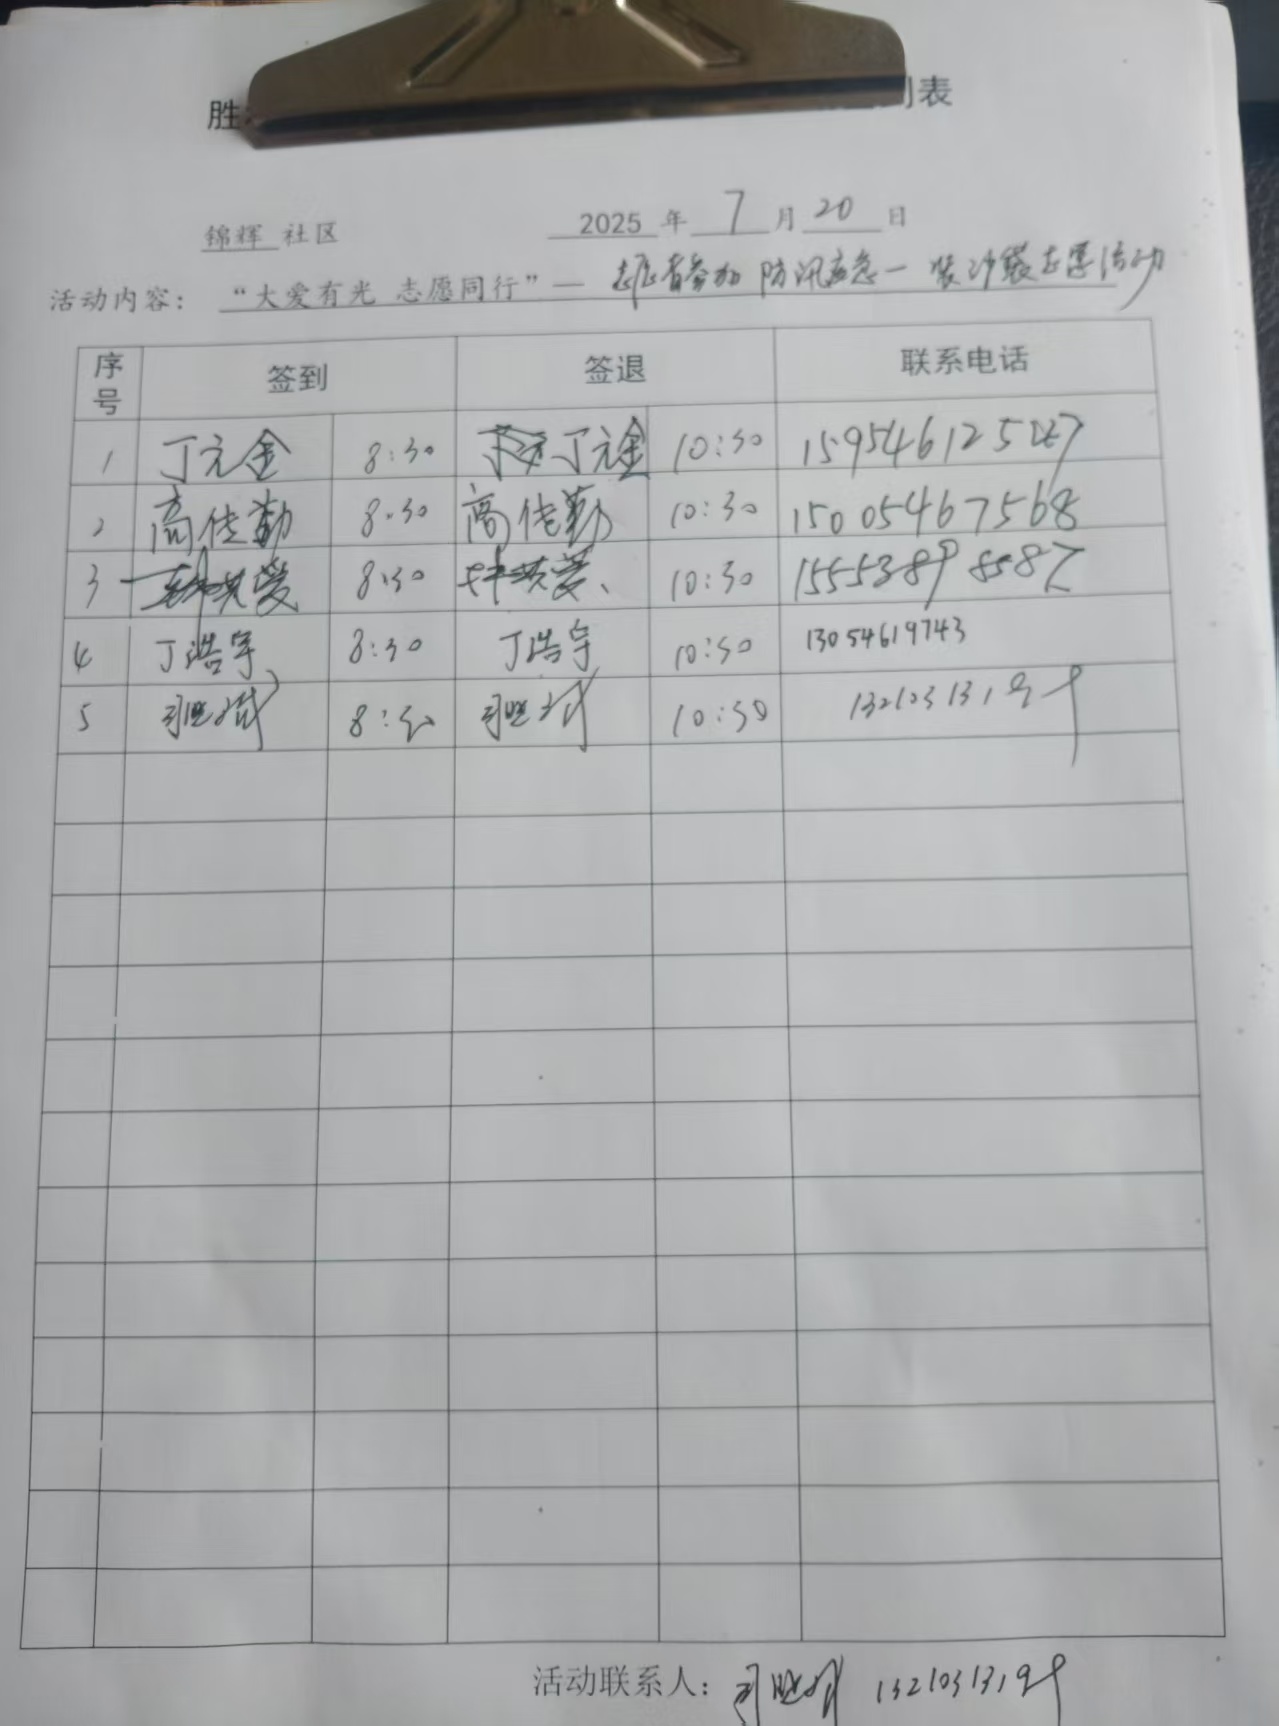 胜 表
锦辉 社区 2025 年 7 月 20 日
活动内容: “大爱有光 志愿同行”— 志愿者参加 防汛应急一 装沙袋志愿活动
序号 签到 签退 联系电话
1 丁元金 8:30 丁元金 10:30
2 高传勤 8:30 高传勤 10:30 15005467568
3 8:30 10:30 15553898587
4 丁浩宇 8:30 丁浩宇 10:30 13054619743
5 8:30 10:30
活动联系人: